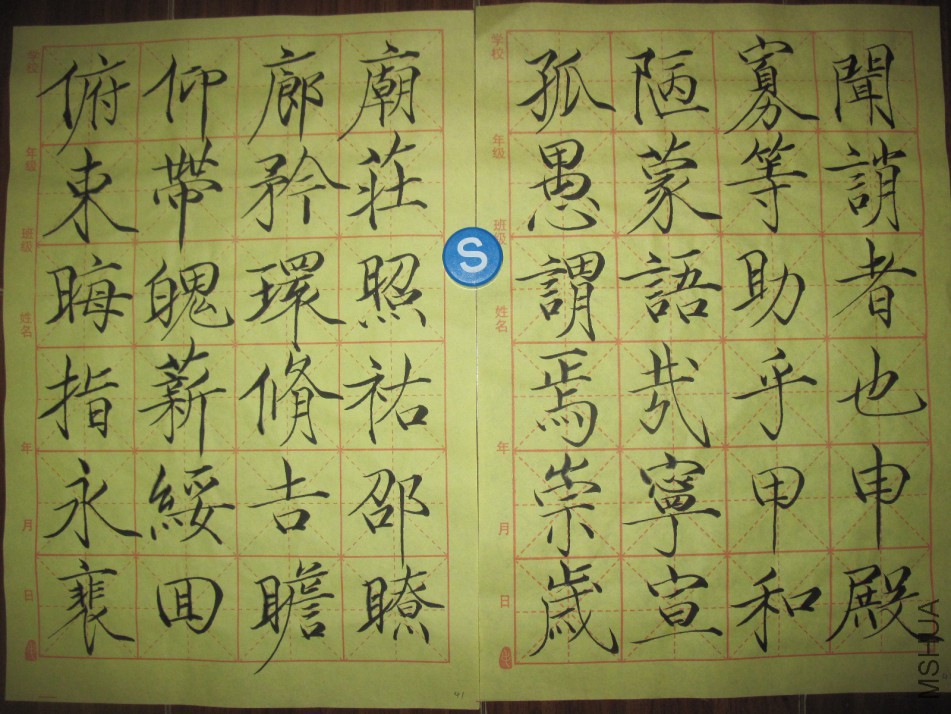 俯仰廊廟
束帶矜荘
晦魄環照
指薪脩祐
永綏吉邵
裵囬瞻瞭
孤陋寡聞
愚蒙等誚
謂語助者
焉哉乎也
崇寧甲申
歲宣和殿
学校
年级
班级
姓名
年
月
日
学校
年级
班级
姓名
年
月
日
S
41
MSHUA